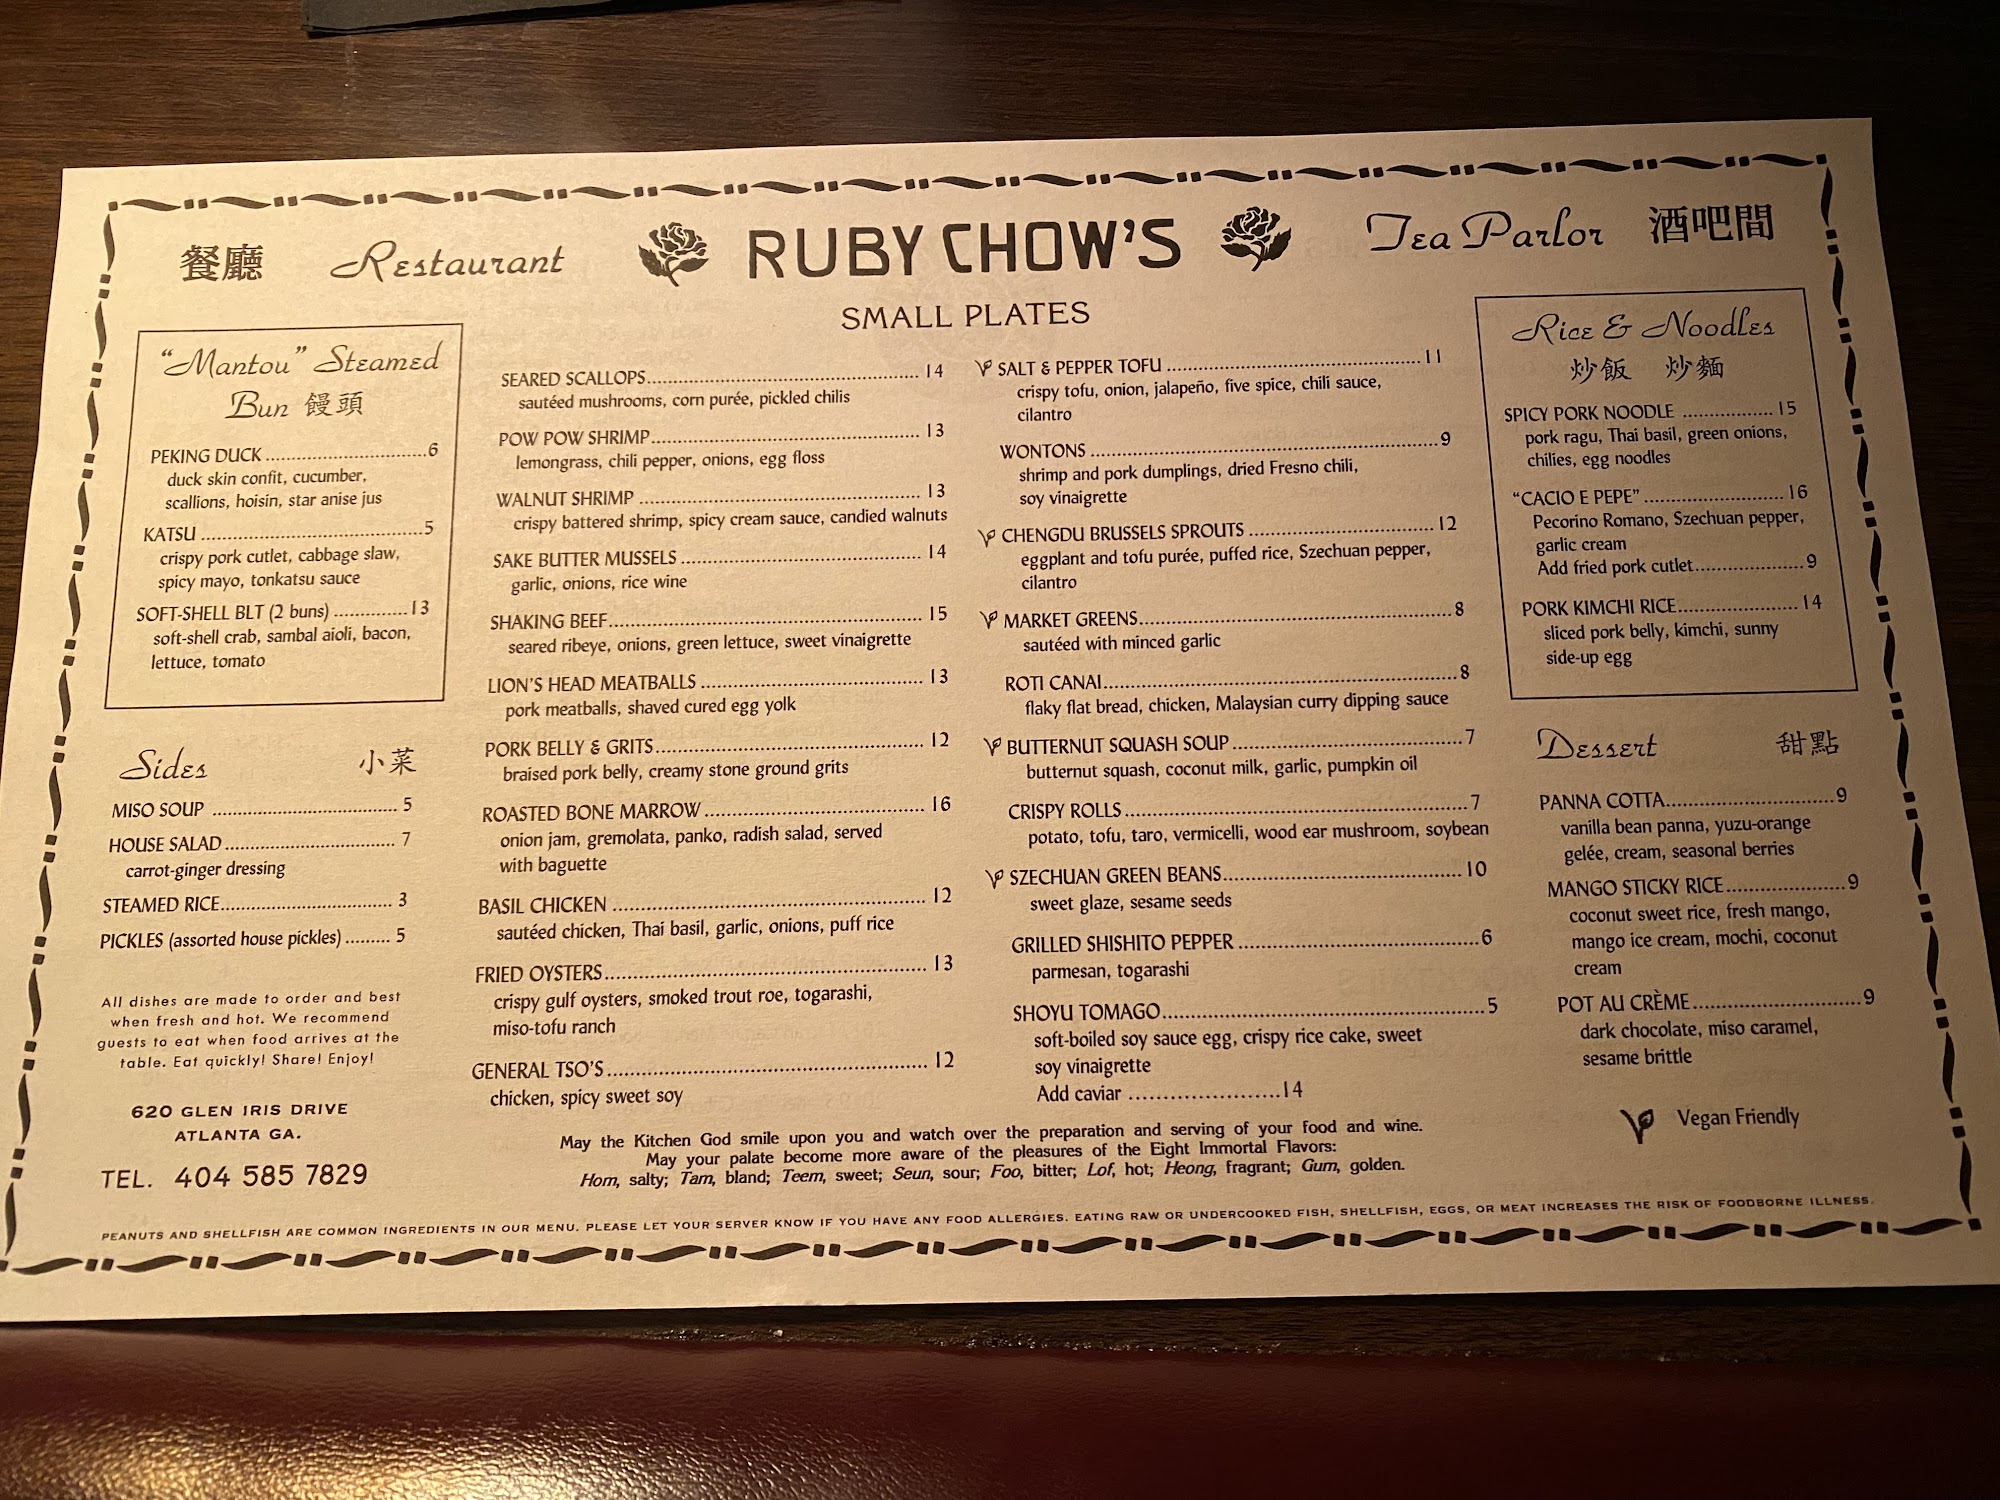 餐廳 Restaurant RUBY CHOW'S Tea Parlor 酒吧間
"Mantou" Steamed
Bun 饅頭
PEKING DUCK ............................ 6
duck skin confit, cucumber,
scallions, hoisin, star anise jus
KATSU ............................ 5
crispy pork cutlet, cabbage slaw,
spicy mayo, tonkatsu sauce
SOFT-SHELL BLT (2 buns) .............. 13
soft-shell crab, sambal aioli, bacon,
lettuce, tomato
Sides 小菜
MISO SOUP ............................ 5
HOUSE SALAD ............................ 7
carrot-ginger dressing
STEAMED RICE ............................ 3
PICKLES (assorted house pickles) ......... 5
All dishes are made to order and best
when fresh and hot. We recommend
guests to eat when food arrives at the
table. Eat quickly! Share! Enjoy!
620 GLEN IRIS DRIVE
ATLANTA GA.
TEL. 404 585 7829
SMALL PLATES
SEARED SCALLOPS ............................ 14
sautéed mushrooms, corn purée, pickled chilis
POW POW SHRIMP ............................ 13
lemongrass, chili pepper, onions, egg floss
WALNUT SHRIMP ............................ 13
crispy battered shrimp, spicy cream sauce, candied walnuts
SAKE BUTTER MUSSELS ............................ 14
garlic, onions, rice wine
SHAKING BEEF ............................ 15
seared ribeye, onions, green lettuce, sweet vinaigrette
LION'S HEAD MEATBALLS ............................ 13
pork meatballs, shaved cured egg yolk
PORK BELLY & GRITS ............................ 12
braised pork belly, creamy stone ground grits
ROASTED BONE MARROW ............................ 16
onion jam, gremolata, panko, radish salad, served
with baguette
BASIL CHICKEN ............................ 12
sautéed chicken, Thai basil, garlic, onions, puff rice
FRIED OYSTERS ............................ 13
crispy gulf oysters, smoked trout roe, togarashi,
miso-tofu ranch
GENERAL TSO'S ............................ 12
chicken, spicy sweet soy
SALT & PEPPER TOFU ............................ 11
crispy tofu, onion, jalapeño, five spice, chili sauce,
cilantro
WONTONS ............................ 9
shrimp and pork dumplings, dried Fresno chili,
soy vinaigrette
CHENGDU BRUSSELS SPROUTS ............................ 12
eggplant and tofu purée, puffed rice, Szechuan pepper,
cilantro
MARKET GREENS ............................ 8
sautéed with minced garlic
ROTI CANAI ............................ 8
flaky flat bread, chicken, Malaysian curry dipping sauce
BUTTERNUT SQUASH SOUP ............................ 7
butternut squash, coconut milk, garlic, pumpkin oil
CRISPY ROLLS ............................ 7
potato, tofu, taro, vermicelli, wood ear mushroom, soybean
SZECHUAN GREEN BEANS ............................ 10
sweet glaze, sesame seeds
GRILLED SHISHITO PEPPER ............................ 6
parmesan, togarashi
SHOYU TOMAGO ............................ 5
soft-boiled soy sauce egg, crispy rice cake, sweet
soy vinaigrette
Add caviar ....................... 14
Rice & Noodles
炒飯 炒麵
SPICY PORK NOODLE ................. 15
pork ragu, Thai basil, green onions,
chilies, egg noodles
"CACIO E PEPE" ......................... 16
Pecorino Romano, Szechuan pepper,
garlic cream
Add fried pork cutlet .................... 9
PORK KIMCHI RICE ...................... 14
sliced pork belly, kimchi, sunny
side-up egg
Dessert 甜點
PANNA COTTA ............................ 9
vanilla bean panna, yuzu-orange
gelée, cream, seasonal berries
MANGO STICKY RICE .................... 9
coconut sweet rice, fresh mango,
mango ice cream, mochi, coconut
cream
POT AU CRÈME ............................ 9
dark chocolate, miso caramel,
sesame brittle
Vegan Friendly
May the Kitchen God smile upon you and watch over the preparation and serving of your food and wine.
May your palate become more aware of the pleasures of the Eight Immortal Flavors:
Hom, salty; Tam, bland; Teem, sweet; Seun, sour; Foo, bitter; Lof, hot; Heong, fragrant; Gum, golden.
PEANUTS AND SHELLFISH ARE COMMON INGREDIENTS IN OUR MENU. PLEASE LET YOUR SERVER KNOW IF YOU HAVE ANY FOOD ALLERGIES. EATING RAW OR UNDERCOOKED FISH, SHELLFISH, EGGS, OR MEAT INCREASES THE RISK OF FOODBORNE ILLNESS.